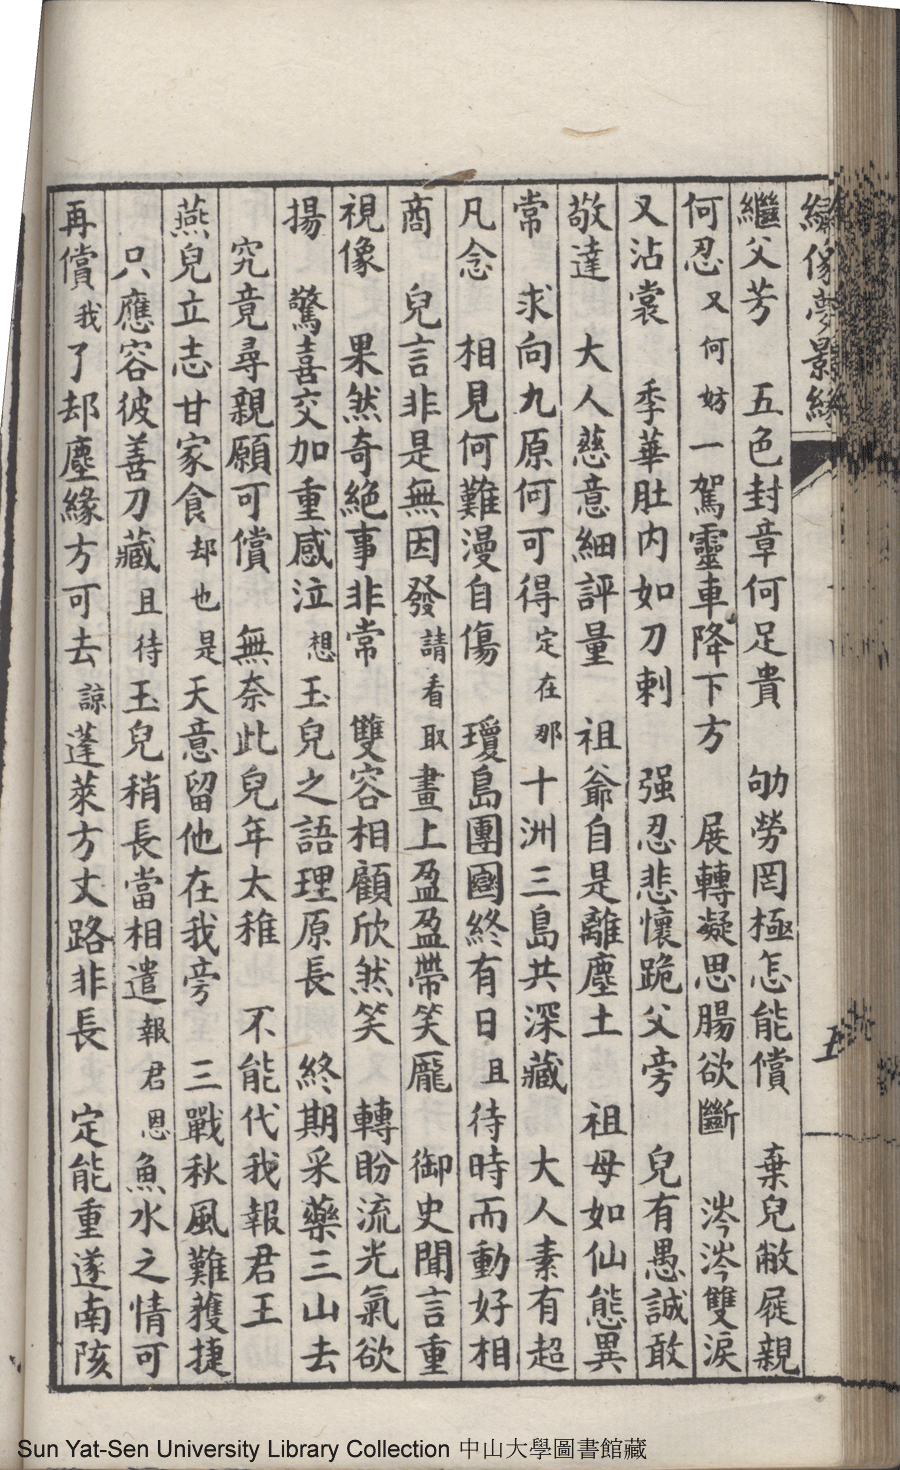 繡像夢影緣
五
繼父芳　五色封章何足貴　劬勞罔極怎能償　棄兒敝屣親
何忍又何妨一駕靈車降下方　展轉凝思腸欲斷　涔涔雙淚
又沾裳　季華肚内如刀刺　强忍悲懷跪父旁　兒有愚誠敢
敬達　大人慈意細評量　祖爺自是離塵土　祖母如仙態異
常　求向九原何可得定在那十洲三島共深藏　大人素有超
凡念　相見何難漫自傷　瓊島團圝終有日且待時而動好相
商　兒言非是無因發請看取畫上盈盈帶笑龐　御史聞言重
視像　果然奇絶事非常　雙容相顧欣然笑　轉盼流光氣欲
揚　驚喜交加重感泣想玉兒之語理原長　終期采藥三山去
究竟尋親願可償　無奈此兒年太稚　不能代我報君王
燕兒立志甘家食却也是天意留他在我旁　三戰秋風難獲捷
只應容彼善刀藏且待玉兒稍長當相遣報君恩魚水之情可
再償我了却塵緣方可去諒蓬萊方丈路非長　定能重遂南陔
Sun Yat-Sen University Library Collection 中山大學圖書館藏